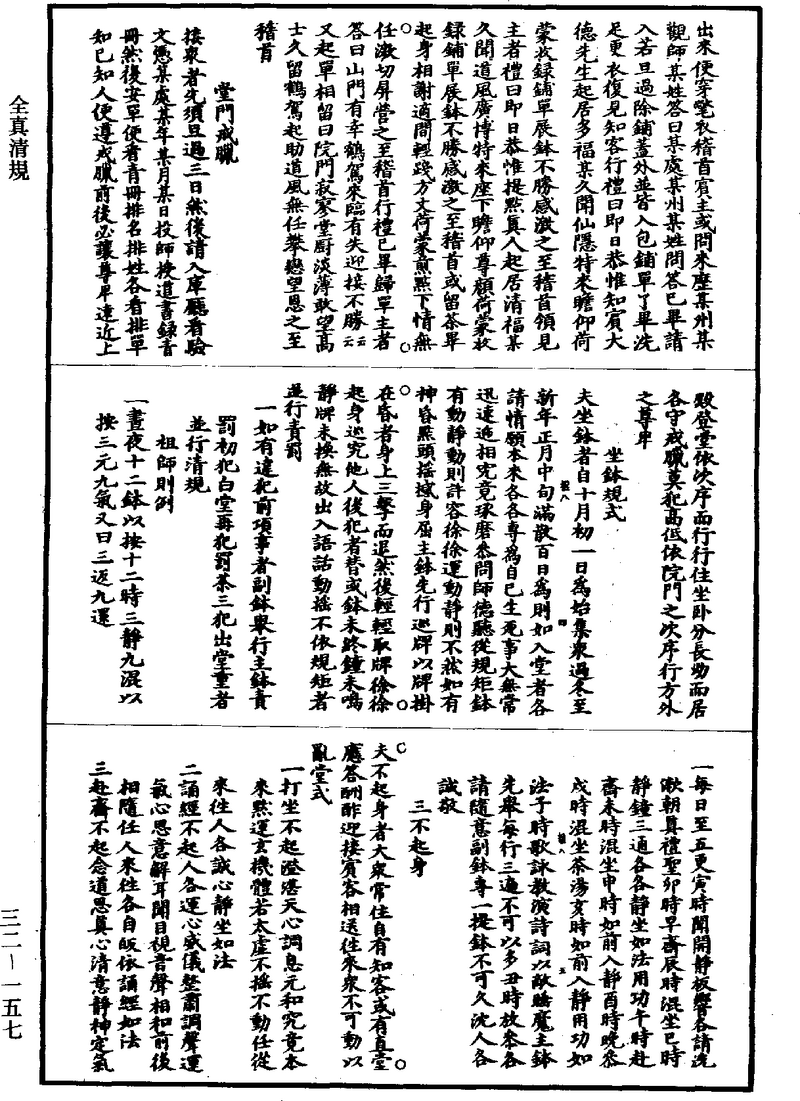 全真清規
出來便穿氅衣稽首賓主或問來歷某州某
觀師某姓答曰某處某州某姓問答已畢請
入若旦過除鋪蓋外並皆入包鋪單了畢洗
足更衣復見知客行禮曰即日恭惟知賓大
德先生起居多福某久聞仙隱特來瞻仰荷
蒙收録鋪單展鉢不勝感激之至稽首領見
主者禮曰即日恭惟提點真人起居清福某
久聞道風廣博特來座下瞻仰尊顏荷蒙收
録鋪單展鉢不勝感激之至稽首或留茶畢
起身相謝適間輕踐方丈荷蒙煎點下情無
任激切屏營之至稽首行禮已畢歸單主者
答曰山門有幸鶴駕來臨有失迎接不勝云云
又起單相留曰院門寂寥堂廚淡薄敢望高
士久留鶴駕起助道風無任攀戀望恩之至
稽首
堂門戒臘
接衆者先須旦過三日然後請入庫廳看驗
文憑某處某年某月某日投師授道書録青
冊然後安單便看青冊排名排姓各看排單
知已知人便遵戒臘前後必讓尊卑遠近上
殿登堂依次序而行行住坐卧分長幼而居
各守戒臘莫犯高低依院門之次序行方外
之尊卑
坐鉢規式
夫坐鉢者自十月初一日為始集衆過冬至
新年正月中旬滿散百日為則如入堂者各
請情願本來各各專為自己生死事大無常
迅速遞相究竟琢磨叅問師德聽從規矩鉢
有動靜動則許容徐徐運動靜則不然如有
神昏點頭摇撼身屈主鉢先行巡牌以牌掛
在昏者身上三擊而退然後輕輕取牌徐徐
起身巡究他人後犯者替或鉢未終鐘未鳴
靜牌未換無故出入語話動摇不依規矩者
並行責罰
一如有違犯前項事者副鉢舉行主鉢責
罰初犯白堂再犯罰茶三犯出堂重者
並行清規
祖師則例
一晝夜十二鉢以按十二時三靜九混以
按三元九氣又曰三返九還
一每日至五更寅時聞開靜板響各請洗
漱朝真禮聖卯時早齋辰時混坐巳時
靜鐘三通各各靜坐如法用功午時赴
齋未時混坐申時如前入靜酉時晚叅
戌時混坐茶湯亥時如前入靜用功如
法子時歌詠教演詩詞以敵睡魔主鉢
先舉每行三遍不可以多丑時放叅各
請隨意副鉢專一提鉢不可久沈人各
誠敬
三不起身
夫不起身者大衆常住自有知客或有直堂
應答酬酢迎接賓客相送往來衆不可動以
亂堂式
一打坐不起澄湛天心調息元和究竟本
來默運玄機體若太虚不摇不動任從
來往人各誠心靜坐如法
二誦經不起人各運心威儀整肅調聲運
氣心思意解耳聞目視音聲相和前後
相隨任人來往各自皈依誦經如法
三赴齋不起念道思真心清意靜神定氣
三二—一五七